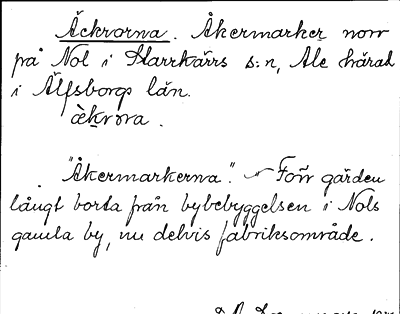 Äckrorna. Åkermarker norr
på Nol i Starrkärrs s:n, Ale härad
i Älfsborgs län.
ækrora.
"Åkermarkerna". Förr gärden
långt borta från bybebyggelsen i Nols
gamla by, nu delvis fabriksområde.